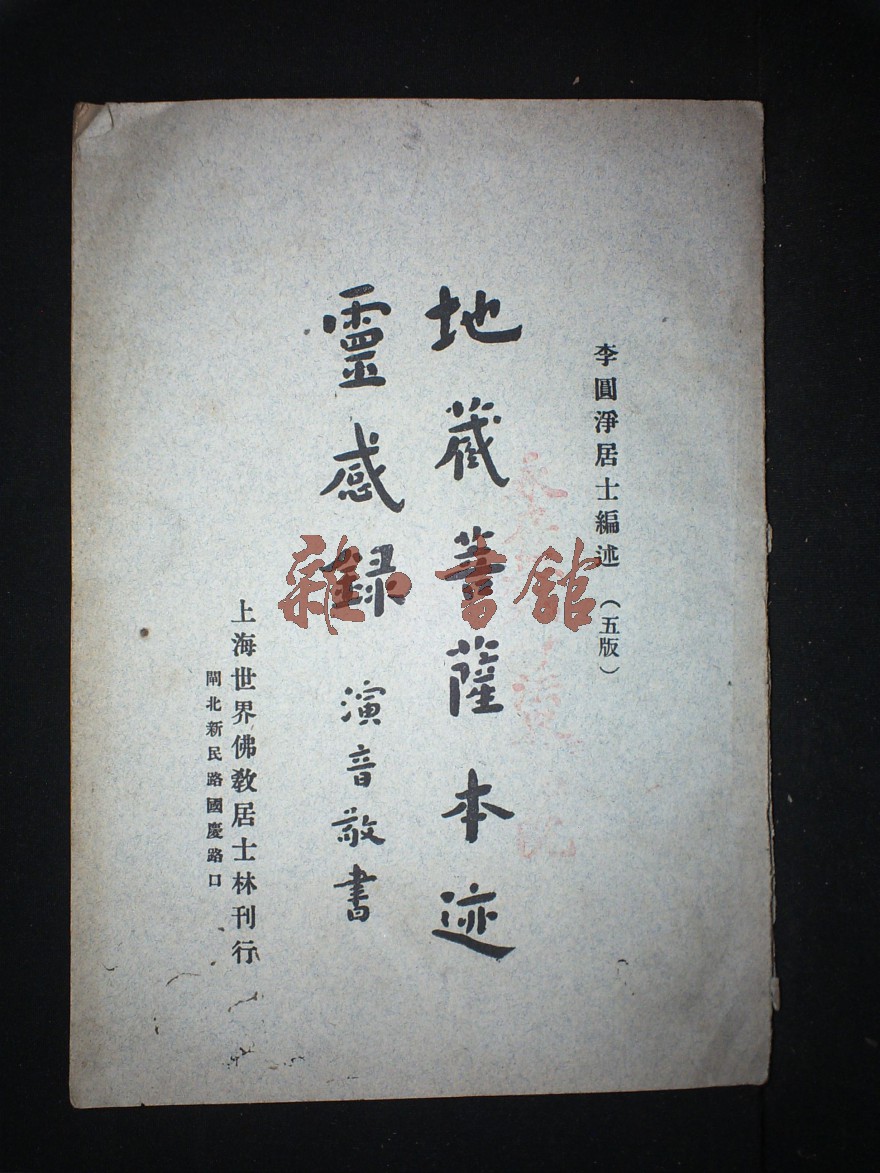 李圓淨居士編述(五版)
地藏菩薩本迹
靈感録 演音敬書
上海世界佛教居士林刊行
閘北新民路國慶路口
雜·書舘